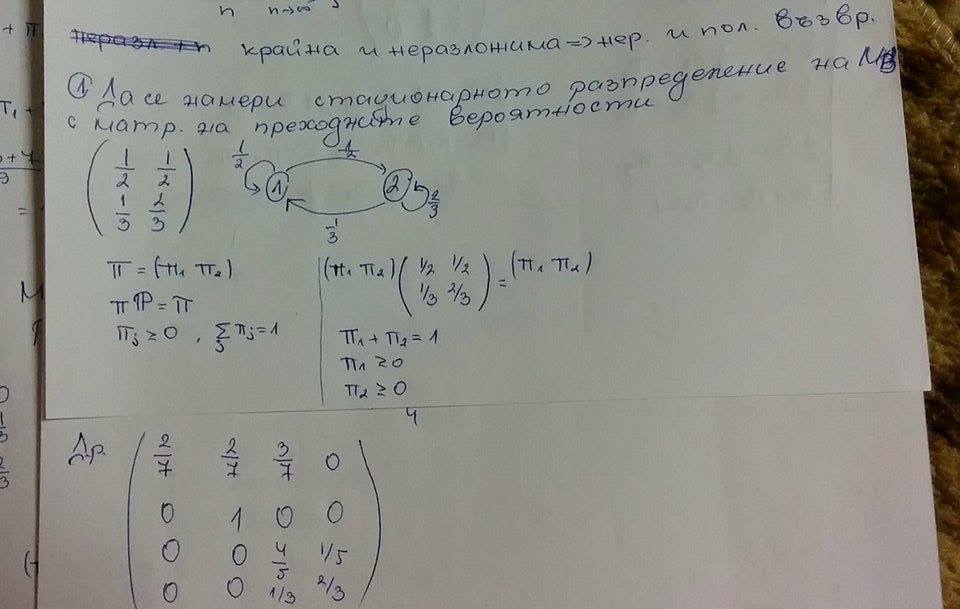 n n→∞
крайна и неразложима => нер. и пол. възвр.
① Да се намери стационарното разпределение на МВ
с матр. на преходните вероятности
1/2 1/2
1/3 2/3
1/2 1/2
1 2
2/3
1/3
π = (π₁ π₂)
πℙ = π
πⱼ ≥ 0 , ∑ⱼ πⱼ = 1
(π₁ π₂) ( 1/2 1/2 ) = (π₁ π₂)
1/3 2/3
π₁ + π₂ = 1
π₁ ≥ 0
π₂ ≥ 0
4
Др
2/7 2/7 3/7 0
0 1 0 0
0 0 4/5 1/5
0 0 1/3 2/3